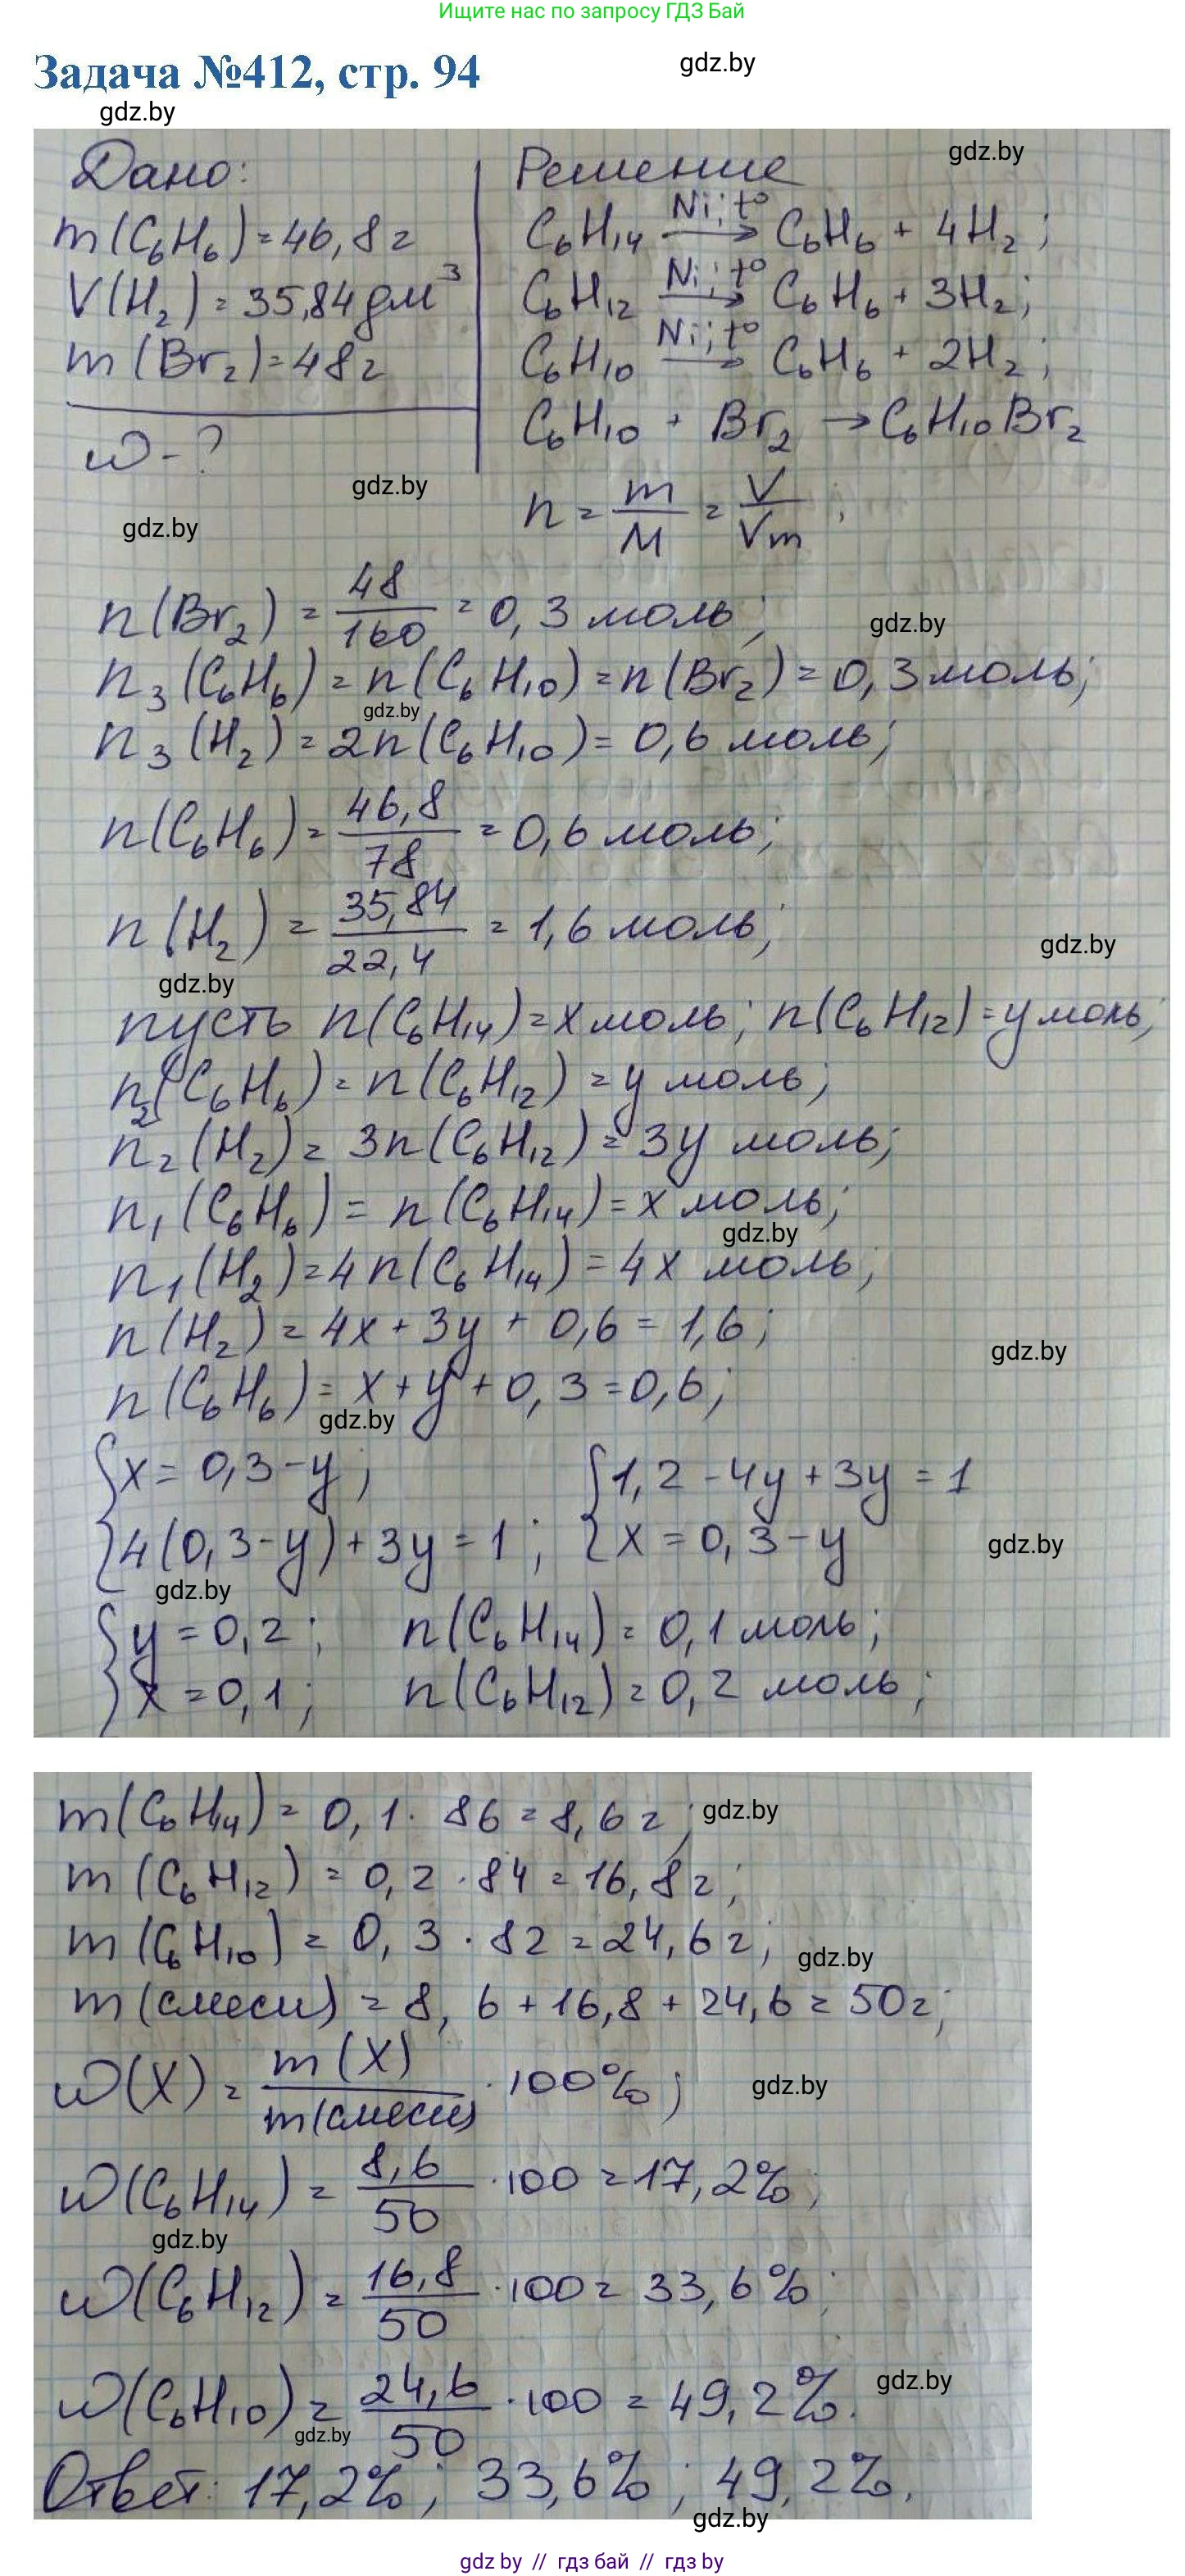 Ищите нас по запросу ГДЗ Бай
Задача №412, стр. 94
gdz.by
gdz.by
Дано:
Решение
gdz.by
m(C₆H₆)=46,8г
C₆H₁₄ Ni; t° → C₆H₆ + 4H₂;
V(H₂)=35,84дм³
C₆H₁₂ Ni; t° → C₆H₆ + 3H₂;
m(Br₂)=48г
C₆H₁₀ Ni; t° → C₆H₆ + 2H₂;
ω-?
C₆H₁₀ + Br₂ → C₆H₁₀Br₂
gdz.by
gdz.by
n = m/M = V/Vm;
n(Br₂) = 48/160 = 0,3 моль;
gdz.by
n₃(C₆H₆) = n(C₆H₁₀) = n(Br₂) = 0,3 моль;
gdz.by
n₃(H₂) = 2n(C₆H₁₀) = 0,6 моль;
n(C₆H₆) = 46,8/78 = 0,6 моль;
n(H₂) = 35,84/22,4 = 1,6 моль;
gdz.by
gdz.by
пусть n(C₆H₁₄)=x моль; n(C₆H₁₂)=y моль;
n₂(C₆H₆) = n(C₆H₁₂) = y моль;
n₂(H₂) = 3n(C₆H₁₂) = 3y моль;
n₁(C₆H₆) = n(C₆H₁₄) = x моль;
gdz.by
n₁(H₂) = 4n(C₆H₁₄) = 4x моль;
n(H₂) = 4x + 3y + 0,6 = 1,6;
gdz.by
n(C₆H₆) = x + y + 0,3 = 0,6;
gdz.by
{x = 0,3-y; {1,2 - 4y + 3y = 1
{4(0,3-y) + 3y = 1; {x = 0,3 - y
gdz.by
gdz.by
{y = 0,2; n(C₆H₁₄) = 0,1 моль;
{x = 0,1; n(C₆H₁₂) = 0,2 моль;
m(C₆H₁₄) = 0,1 · 86 = 8,6 г;
gdz.by
m(C₆H₁₂) = 0,2 · 84 = 16,8г;
m(C₆H₁₀) = 0,3 · 82 = 24,6 г;
gdz.by
m(смеси) = 8,6 + 16,8 + 24,6 = 50г;
ω(X) = m(X)/m(смеси) · 100%;
gdz.by
ω(C₆H₁₄) = 8,6/50 · 100 = 17,2%;
gdz.by
ω(C₆H₁₂) = 16,8/50 · 100 = 33,6%;
ω(C₆H₁₀) = 24,6/50 · 100 = 49,2%.
gdz.by
gdz.by
Ответ: 17,2%; 33,6%; 49,2%.
gdz.by
gdz by // гдз бай // гдз by